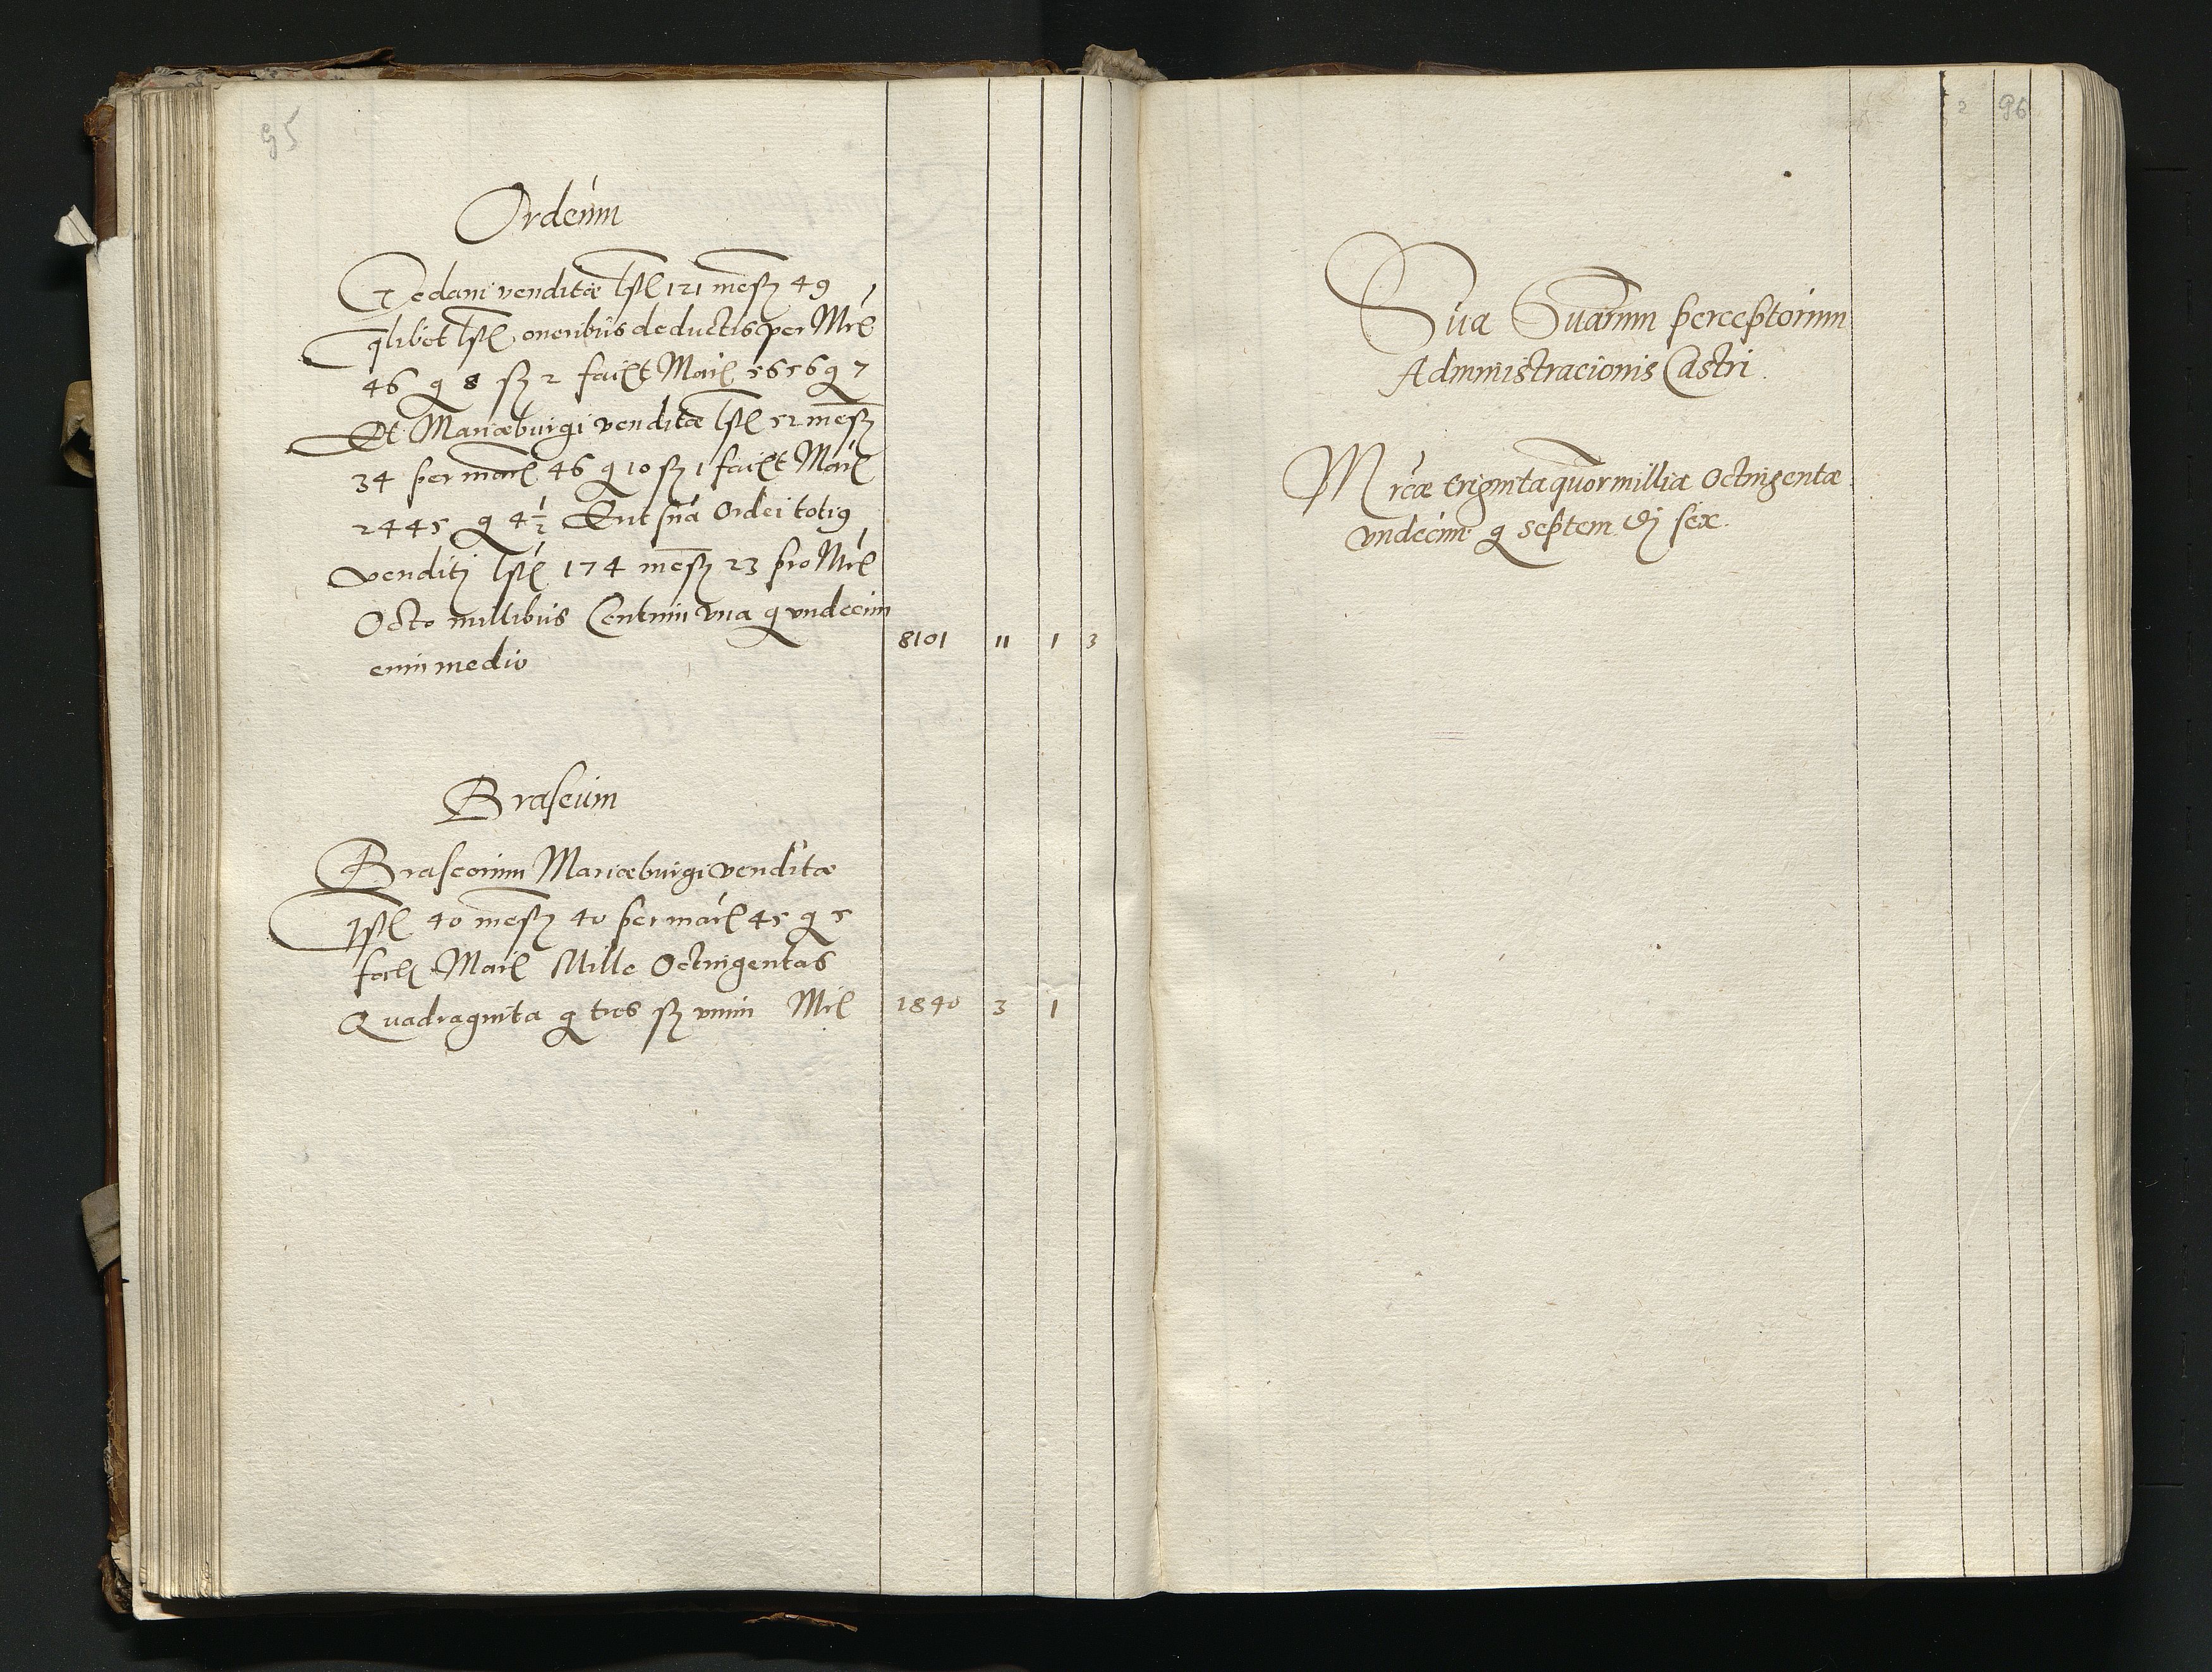 95
Ordeum
Gedani venditæ lst 121 mesz 49
qlibet lst oneribus deductis per Mrc
46 g 8 sz 2 faciūt Marc 5656 g 7
Et Mariæburgi venditæ lst 52 mesz
34 per marc 46 g 10 sz 1 faciūt Marc
2445 g 4½ Eūt sūa Ordei totig
venditi lst 174 mesz 23 pro Mrc
Octo millibus Centum una g undecim
cum medio 8101 11 1 3
Braseum
Braseorum Mariæburgi venditæ
lst 40 mesz 40 per marc 45 g 5
Marc Mille Octingentas
Quadraginta g tres sz unum Mrc 1840 3 1
96
Sūa Suarum perceptorum
Administracionis Castri.
Mrcæ trigintaquor millia Octingentæ
undecim g septem sex.